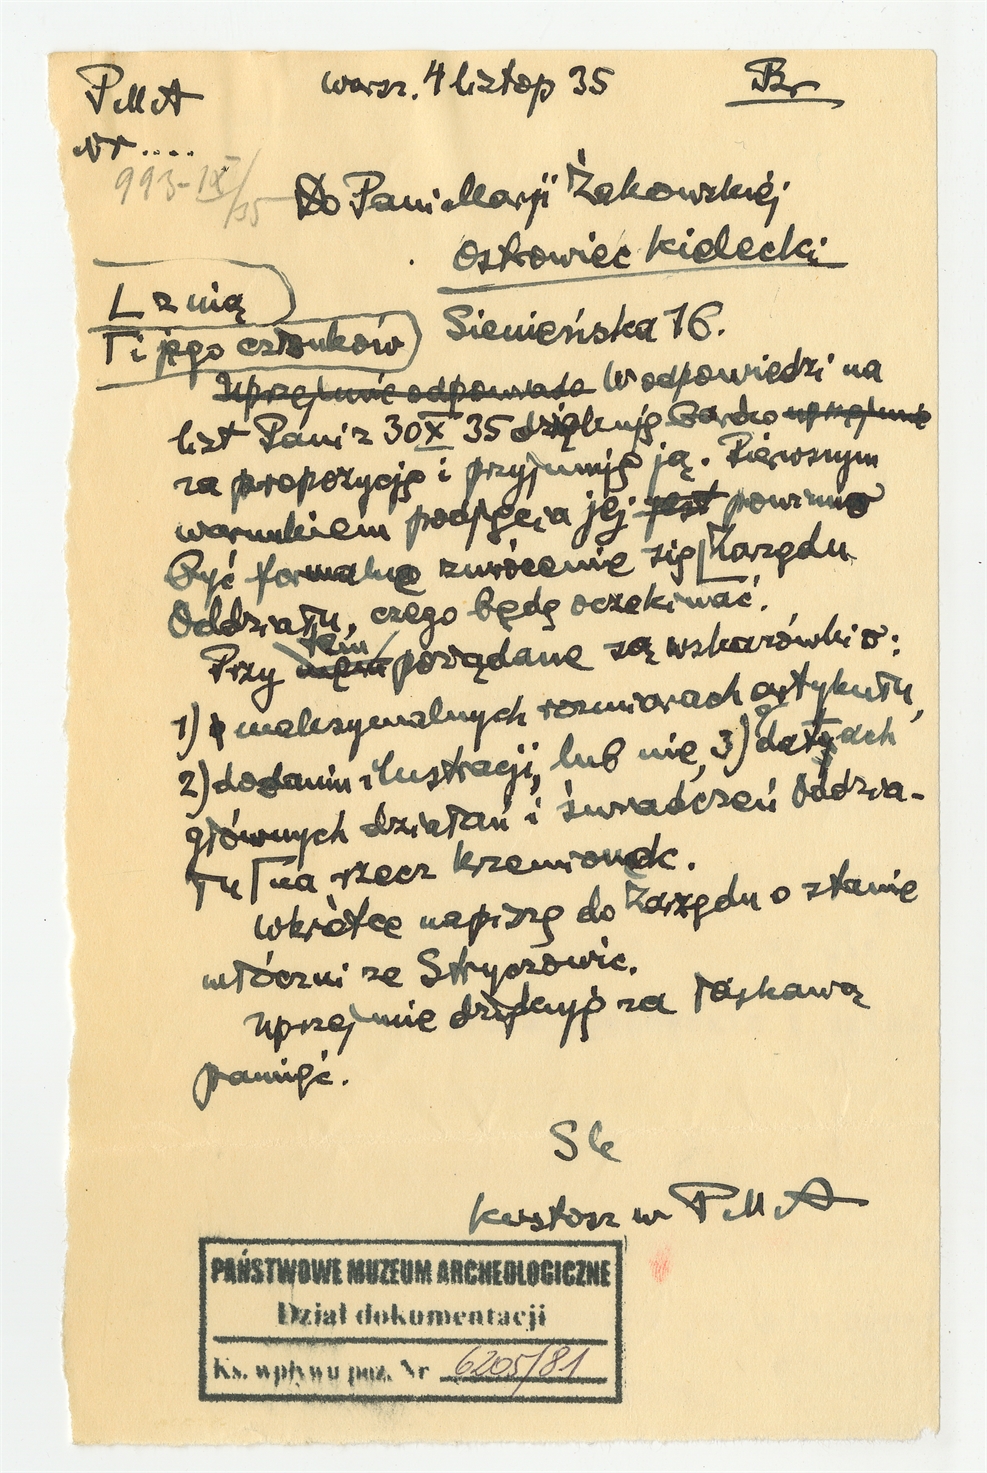 PMA
Warsz. 4 listop 35
Br
Nr....
993-IX/35
Do Pani Marji Żakowskiej
Ostrowiec Kielecki
Sienieńska 16.
⌊ z nią
⌈ i jego członków
Uprzejmie odpowiada W odpowiedzi na
list Pani z 30 X 35 dziękuję bardzo uprzejmie
za propozycję i przyjmuję ją. Pierwszym
warunkiem podjęcia jej jest powinno
być formalne zwrócenie się ⌊ Zarządu
Oddziału, czego będę oczekiwać.
Przy tem pożądane są wskazówki o:
1) maksymalnych rozmiarach artykułu,
2) dodaniu ilustracji, lub nie, 3) datach
głównych działań i świadczeń Oddzia-
łu ⌈ na rzecz Krzemionek.
Wkrótce napiszę do Zarządu o stanie
włóczni ze Stryczowic.
Uprzejmie dziękuję za łaskawą
pamięć.
Sk
kustosz w PMA
PAŃSTWOWE MUZEUM ARCHEOLOGICZNE
Dział dokumentacji
Ks. wpływu poz. Nr 6205/81